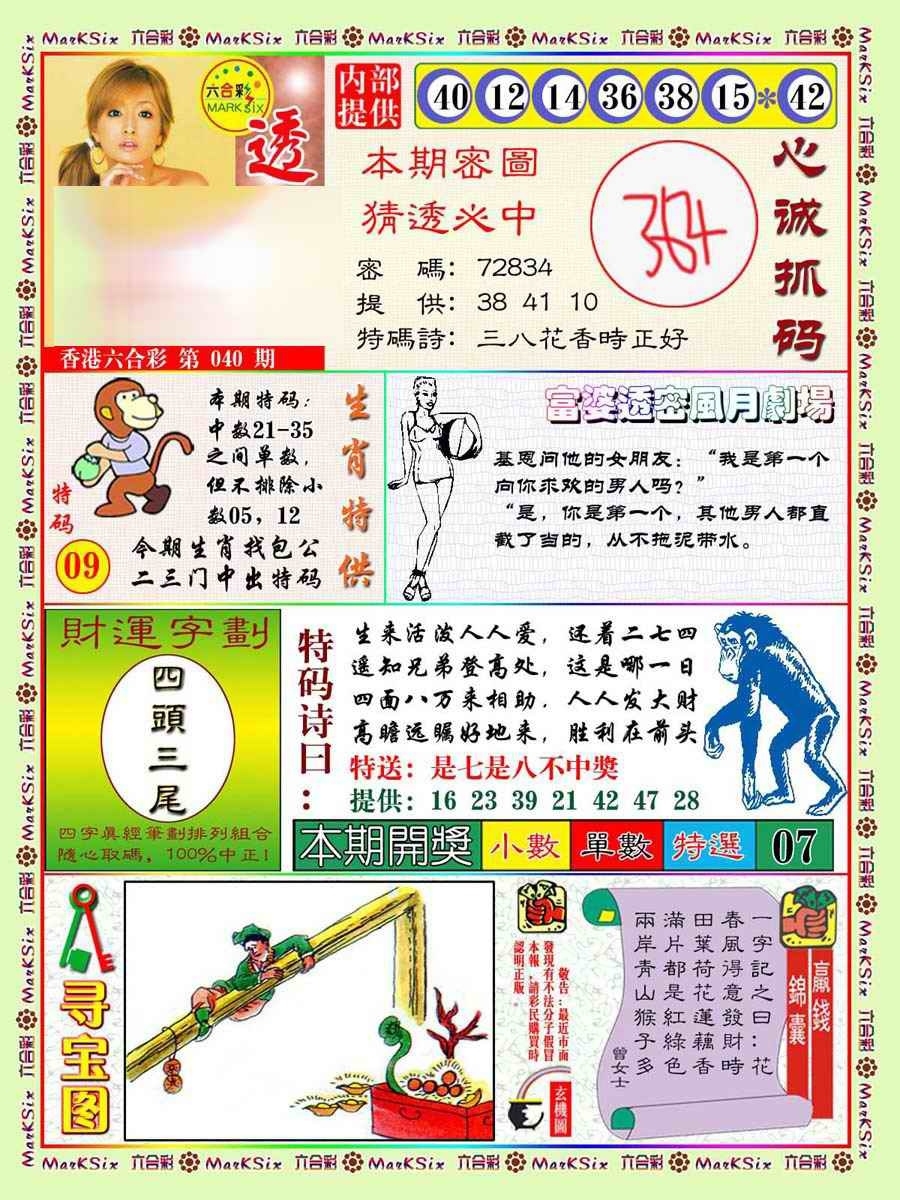 MarKSix 六合彩 MarKSix 六合彩 MarKSix 六合彩 MarKSix 六合彩 MarKSix 六合彩
六合彩
MARK SIX
透
内部
提供
40 12 14 36 38 15 * 42
本期密圖
猜透必中
密 碼：72834
提 供：38 41 10
特碼詩：三八花香時正好
364
心诚抓码
香港六合彩 第 040 期
特码
09
本期特码：
中数21-35
之间单数，
但不排除小
数05，12
今期生肖找包公
二三门中出特码
生肖特供
富婆透密風月劇場
基恩问他的女朋友：“我是第一个
向你求欢的男人吗？”
“是，你是第一个，其他男人都直
截了当的，从不拖泥带水。
財運字劃
四頭三尾
四字真經筆劃排列組合
隨心取碼，100%中正！
特码诗曰：
生来活泼人人爱，还着二七四
遥知兄弟登高处，这是哪一日
四面八万来相助，人人发大财
高瞻远瞩好地来，胜利在前头
特送：是七是八不中獎
提供：16 23 39 21 42 47 28
本期開獎 小數 單數 特選 07
寻宝图
敬告：最近市面
發現有不法分子假冒
本報，請彩民購買時
認明正版。
玄機圖
贏錢
錦囊
一字記之曰：花
春風得意發財時
田葉荷花蓮藕香
滿片都是紅綠色
兩岸青山猴子多
曾女士
MarKSix 六合彩 MarKSix 六合彩 MarKSix 六合彩 MarKSix 六合彩 MarKSix 六合彩